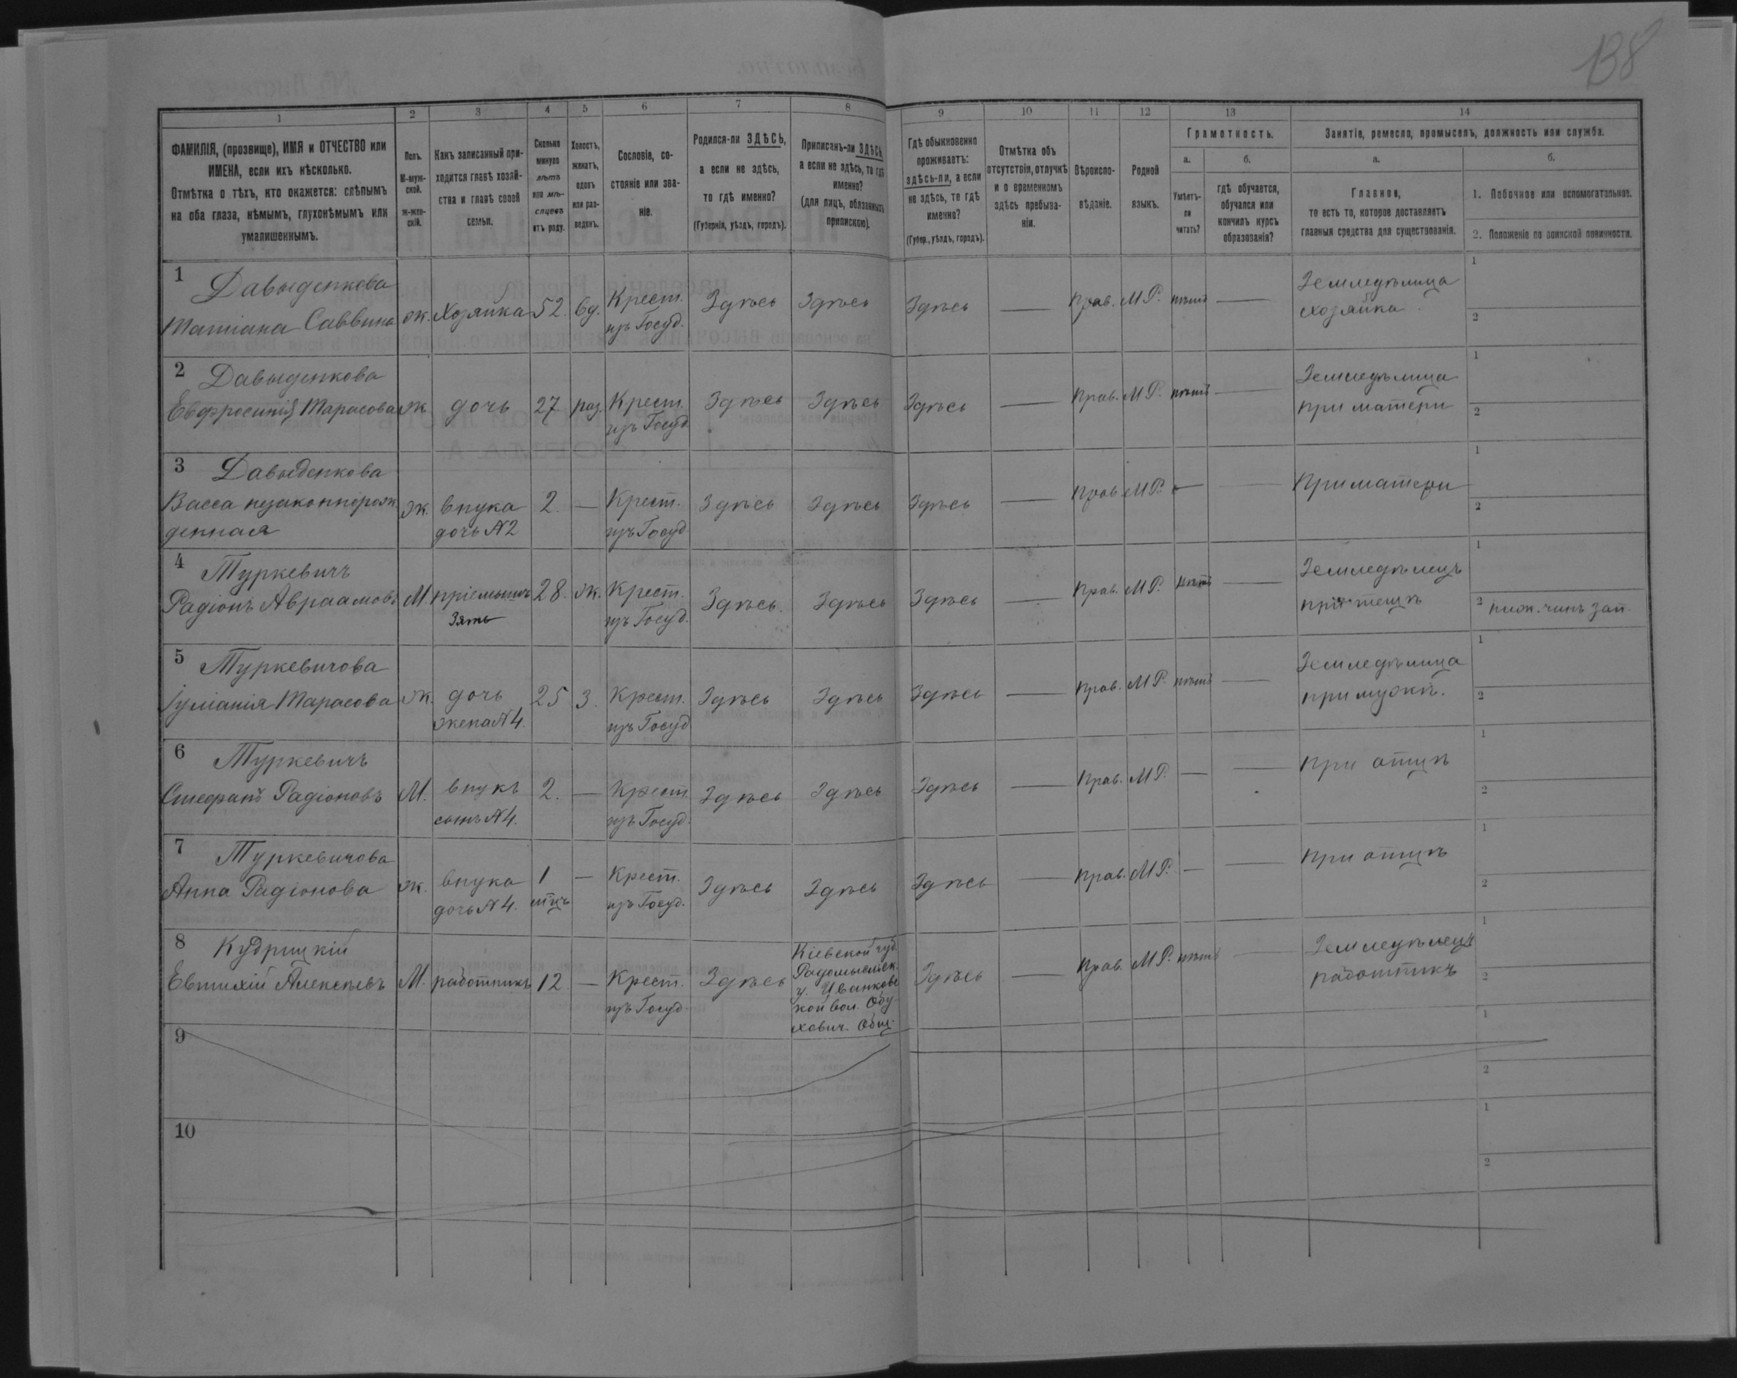 138
1 2 3 4 5 6 7 8 9 10 11 12 13 14
ФАМИЛІЯ, (прозвище), ИМЯ и ОТЧЕСТВО или
ИМЕНА, если ихъ нѣсколько.
Отмѣтка о тѣхъ, кто окажется: слѣпымъ
на оба глаза, нѣмымъ, глухонѣмымъ или
умалишеннымъ.
Полъ.
М-муж-
ской.
ж-жен-
скій.
Какъ записанный при-
ходится главѣ хозяй-
ства и главѣ своей
семьи.
Сколько
минуло
лѣтъ
или мѣ-
сяцевъ
отъ роду.
Холостъ,
женатъ,
вдовъ
или раз-
веденъ.
Сословіе, со-
стояніе или зва-
ніе.
Родился-ли ЗДѢСЬ,
а если не здѣсь,
то гдѣ именно?
(Губернія, уѣздъ, городъ).
Приписанъ-ли ЗДѢСЬ
а если не здѣсь, то гдѣ
именно?
(для лицъ, обязанныхъ
припискою).
Гдѣ обыкновенно
проживаетъ:
здѣсь-ли, а если
не здѣсь, то гдѣ
именно?
(Губер., уѣздъ, городъ).
Отмѣтка объ
отсутствіи, отлучкѣ
и о временномъ
здѣсь пребыва-
ніи.
Вѣроиспо-
вѣданіе.
Родной
языкъ.
Грамотность.
а.
Умѣетъ-
ли
читать?
б.
гдѣ обучается,
обучался или
кончилъ курсъ
образованія?
Занятіе, ремесло, промыселъ, должность или служба.
а.
Главное,
то есть то, которое доставляетъ
главныя средства для существованія.
б.
1. Побочное или вспомогательное.
2. Положеніе по воинской повинности.
1 Давыденкова
Татіана Саввина ж. Хозяйка 52. вд. Крест.
изъ Госуд. Здѣсь Здѣсь Здѣсь — Прав. М.Р. нѣтъ — Земледѣлица
хозяйка 1
2
2 Давыденкова
Евфросинія Тарасова ж. дочь 27 раз. Крест.
изъ Госуд. Здѣсь Здѣсь Здѣсь — Прав. М.Р. нѣтъ — Земледѣлица
при матери 1
2
3 Давыденкова
Васса незаконнорож-
денная ж. внука
дочь №2 2. — Крест.
изъ Госуд. Здѣсь Здѣсь Здѣсь — Прав. М.Р. — — При матери 1
2
4 Туркевичъ
Радіонъ Авраамовъ М. пріемышъ
Зять 28. ж. Крест.
изъ Госуд. Здѣсь. Здѣсь Здѣсь — Прав. М.Р. нѣтъ — Земледѣлецъ
при тещѣ 1
2 ниж. чинъ зап
5 Туркевичова
Іуліанія Тарасова ж. дочь
жена №4. 25 з. Крест.
изъ Госуд. Здѣсь Здѣсь Здѣсь — Прав. М.Р. нѣтъ — Земледѣлица
при мужѣ. 1
2
6 Туркевичъ
Стефанъ Радіоновъ М. внукъ
сынъ №4. 2. — Крест.
изъ Госуд. Здѣсь Здѣсь Здѣсь — Прав. М.Р. — — при отцѣ 1
2
7 Туркевичова
Анна Радіонова ж. внука
дочь №4. 1 — Крест.
изъ Госуд. Здѣсь Здѣсь Здѣсь — Прав. М.Р. — — при отцѣ 1
2
8 Кудрицкій
Евтихій Алексѣевъ М. работникъ 12 — Крест.
изъ Госуд. Здѣсь Кіевской губ.
Радомысльск.
у. Иванков-
кой вол. Обу-
хович. Общ. Здѣсь — Прав. М.Р. нѣтъ — Земледѣлецъ
работникъ 1
2
9 1
2
10 1
2